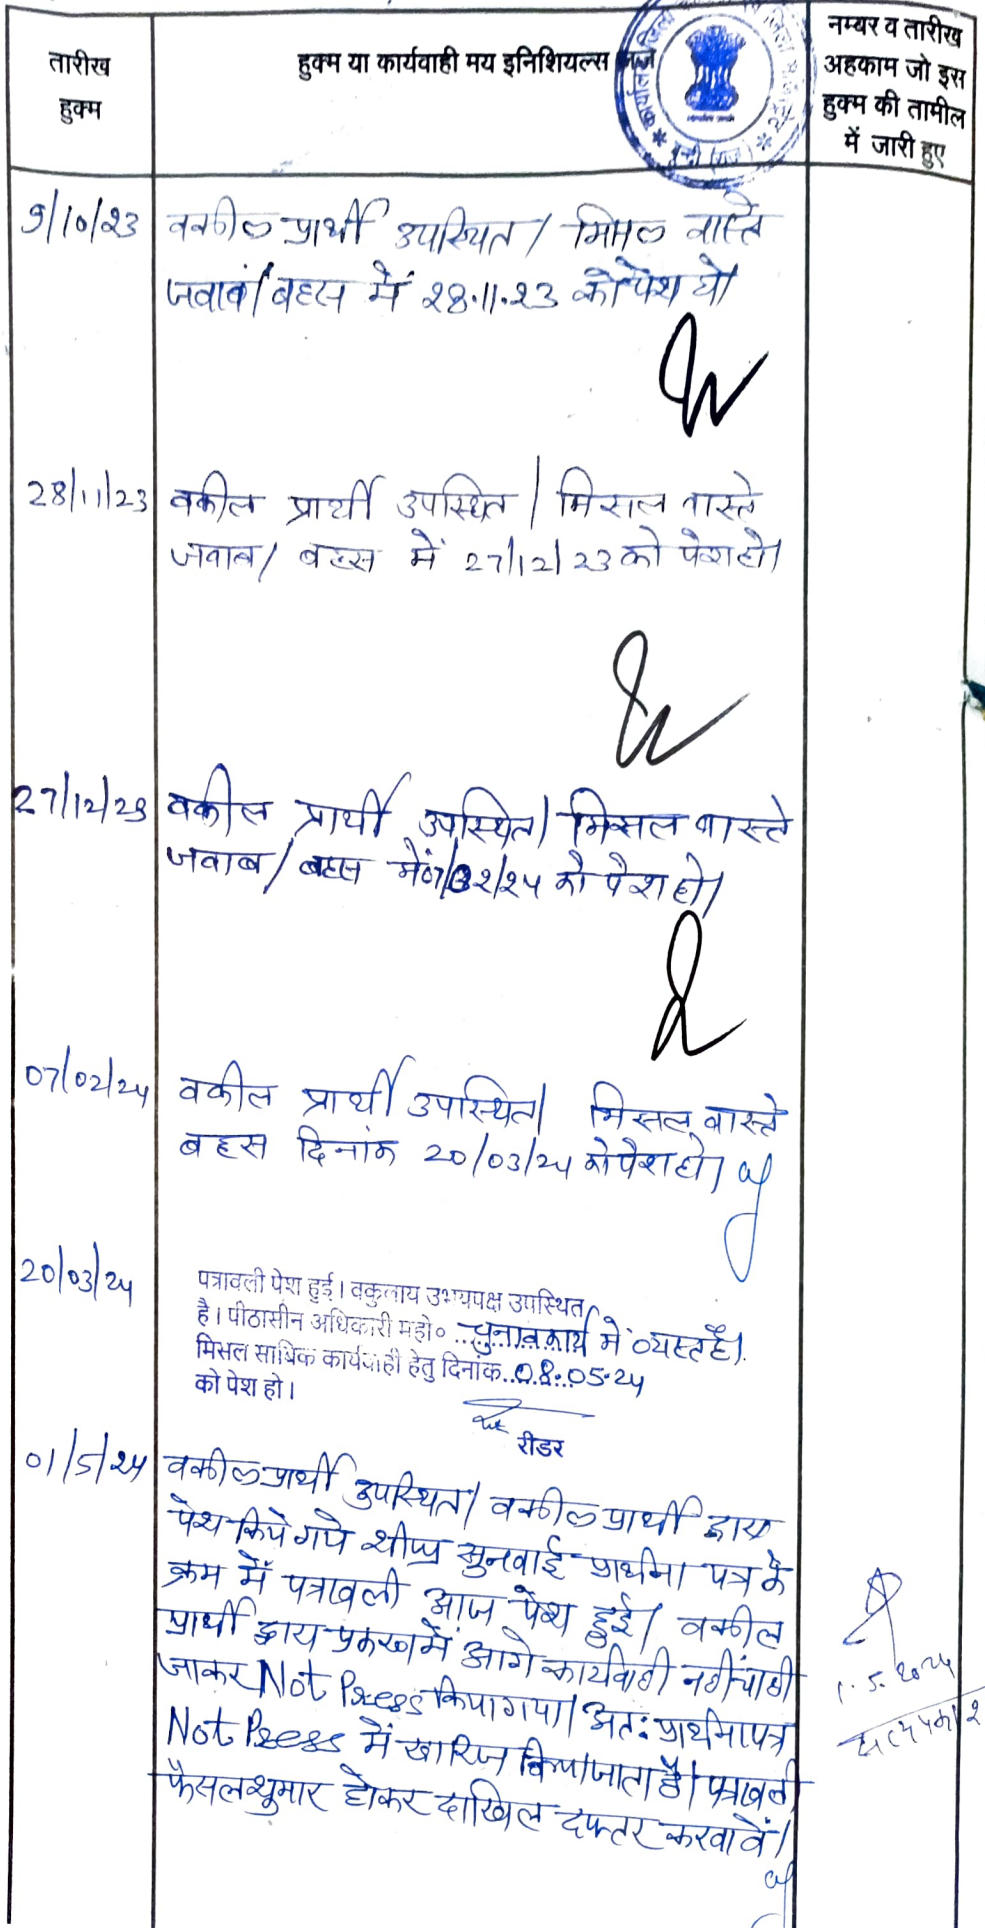 तारीख
हुक्म
हुक्म या कार्यवाही मय इनिशियल्स जज
नम्बर व तारीख
अहकाम जो इस
हुक्म की तामील
में जारी हुए
9/10/23
वकील प्रार्थी उपस्थित/ मिसल वास्ते
जवाब/बहस में 28.11.23 को पेश हो।
28/11/23
वकील प्रार्थी उपस्थित/ मिसल वास्ते
जवाब/ बहस में 27/12/23 को पेश हो।
27/12/23
वकील प्रार्थी उपस्थित/ मिसल वास्ते
जवाब/ बहस में 07/02/24 को पेश हो।
07/02/24
वकील प्रार्थी उपस्थित/ मिसल वास्ते
बहस दिनांक 20/03/24 को पेश हो।
20/03/24
पत्रावली पेश हुई। वकुलाय उभयपक्ष उपस्थित
है। पीठासीन अधिकारी महो० चुनाव कार्य में व्यस्त है।
मिसल साबिक कार्यवाही हेतु दिनांक..08..05-24
को पेश हो।
रीडर
01/5/24
वकील प्रार्थी उपस्थित/ वकील प्रार्थी द्वारा
पेश किये गये शीघ्र सुनवाई प्रार्थना पत्र के
क्रम में पत्रावली आज पेश हुई/ वकील
प्रार्थी द्वारा प्रकरण में आगे कार्यवाही नहीं चाही
जाकर Not Press किया गया/ अतः प्रार्थना पत्र
Not Press में खारिज किया जाता है। पत्रावली
फैसल शुमार होकर दाखिल दफ्तर करवावें।
1.5.2024